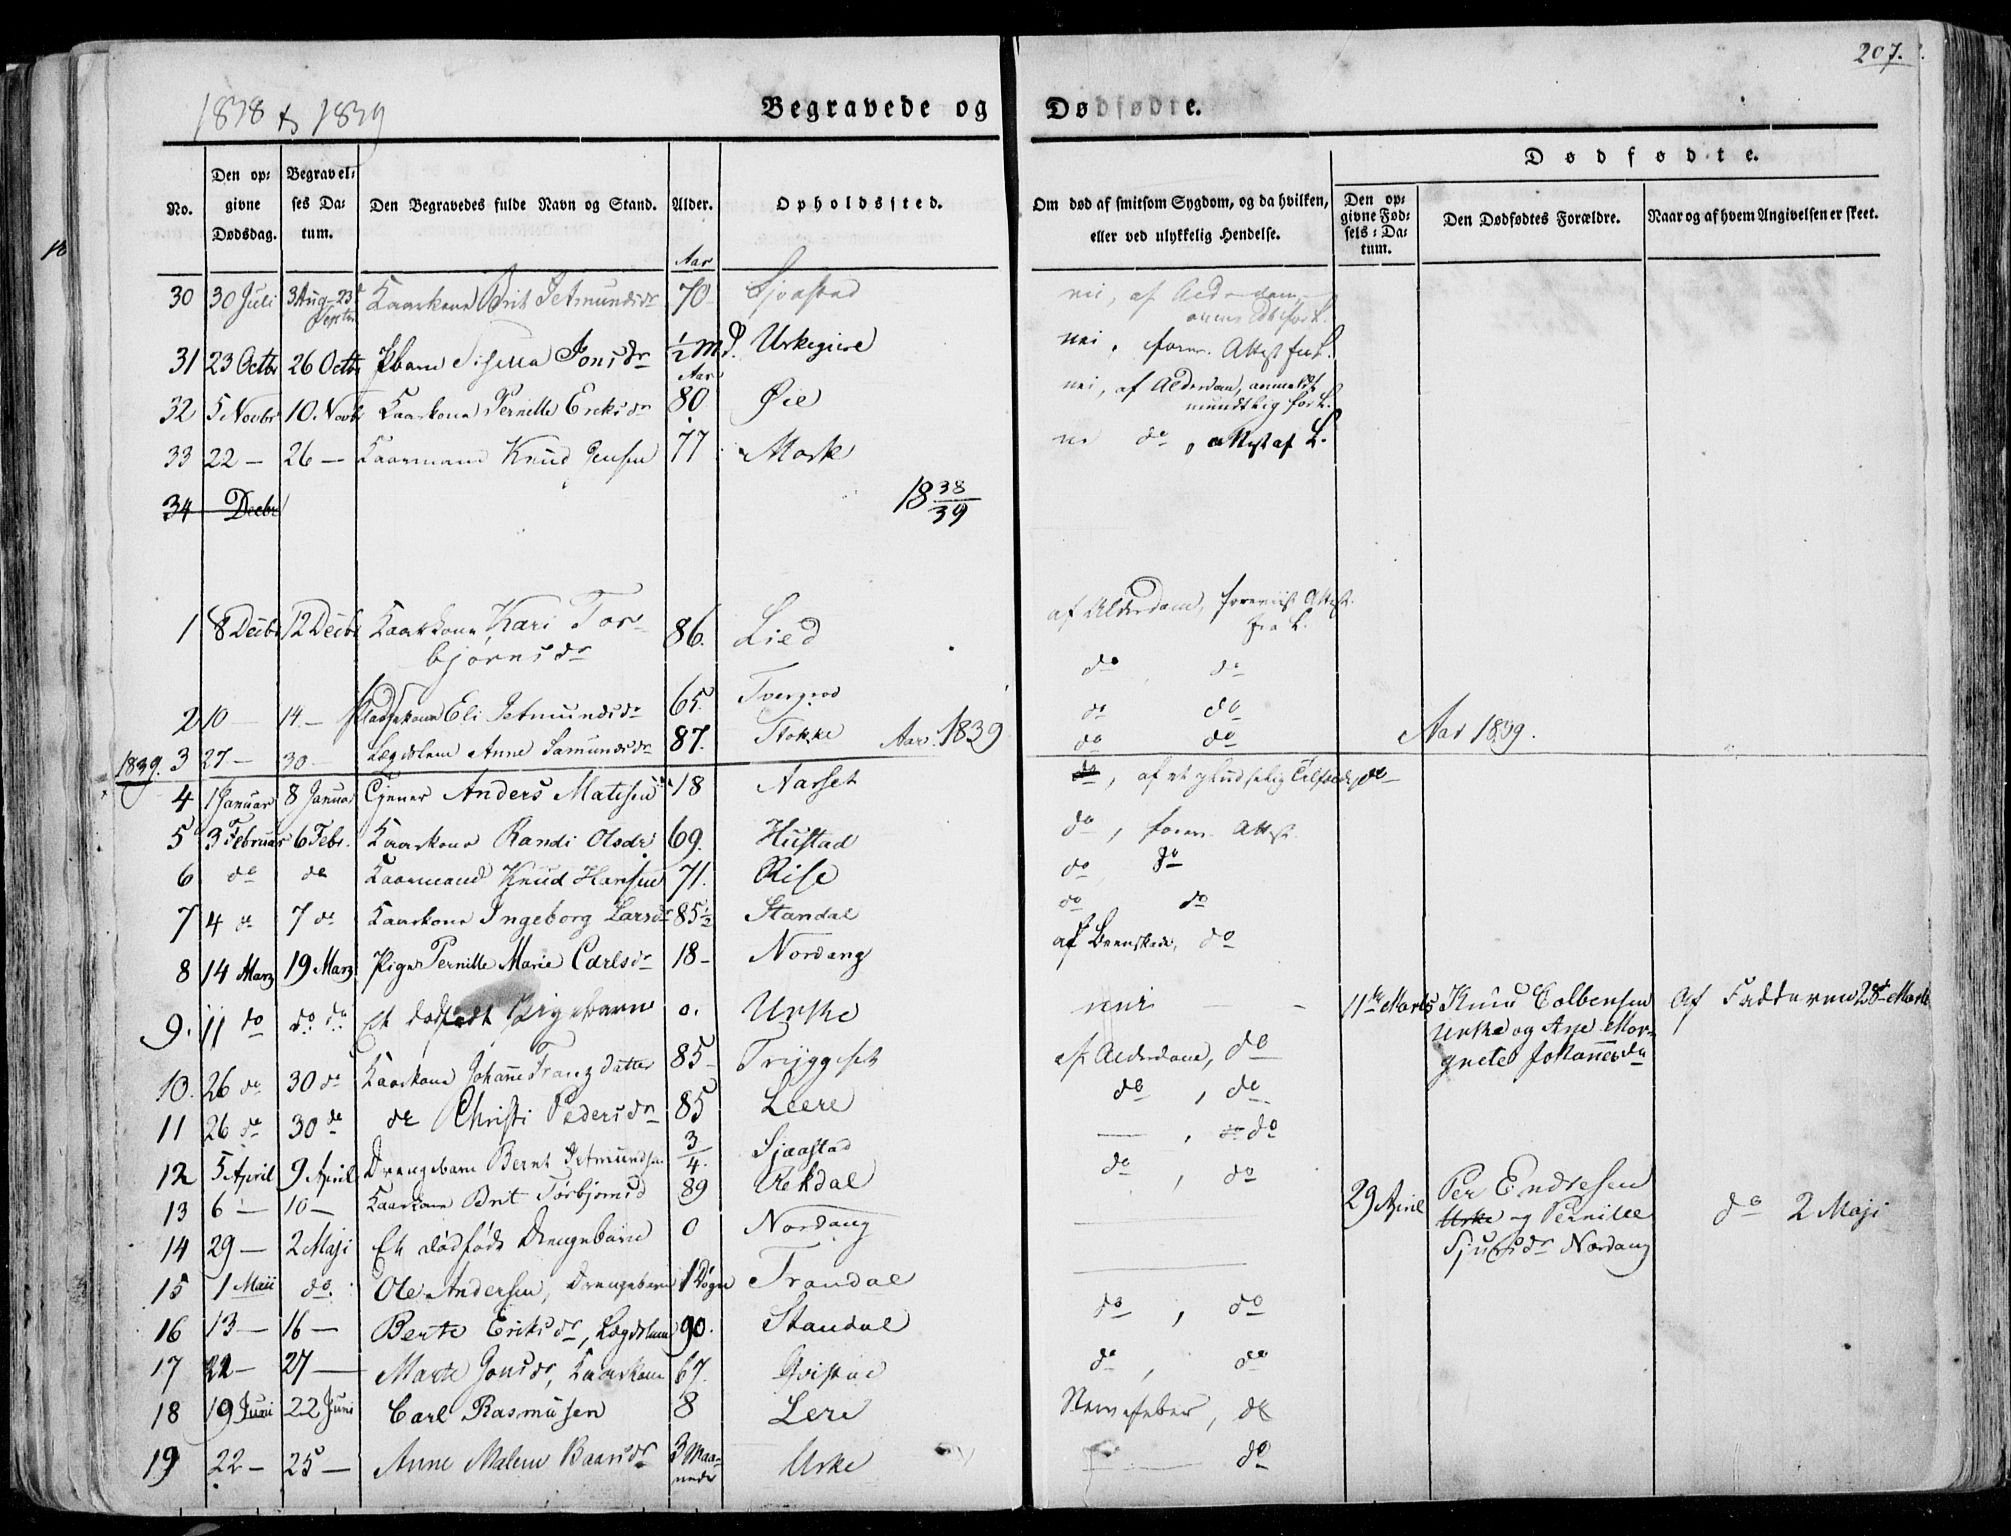 207.
1838 & 1839
Begravede og Dødfødte.
No.
Den op=
givne
Dødsdag.
Begravel=
ses Da=
tum.
Den Begravedes fulde Navn og Stand.
Alder.
Opholdssted.
Om død af smitsom Sygdom, og da hvilken,
eller ved ulykkelig Hendelse.
Dødfødte.
Den op=
givne Fød=
sels=Da=
tum.
Den Dødfødtes Forældre.
Naar og af hvem Angivelsen er skeet.
Aar
30 30 Juli 3 Aug-23d Septbr Kaarkone Brit Jetmundsdr 70 Sjaastad nei, af Alderdom,
31 23 Octbr 26 Octbr Pbarn Jonsdr ½ Md. Urkegiere nei, Attest fra L.
Aar
32 5 Novbr 10. Novbr Kaarkone Pernille Eriksdr 80 Øie nei, af Alderdom, anmeldt
mundtlig for L.
33 22 — 26 — Kaarmand Knud Jensen 77 Mork do, Attest af L.
34 Decbr
18 38/39
1 8 Decbr 12 Decbr Kaarkone Kari Tor=
bjørnsdr 86. Lied af Alderdom, foreviist Attest
fra L.
2 10 — 14. — Eli Jetmundsdr 65. do do
3 27 — 30 — Lægdslem Anne Samundsdr 87. Stokke do do
Aar 1839 Aar 1839.
1839.
4 1 Januar 8 Januar Tjener Anders Matisen 18 Aarset do, af et
5 3 Februar 6 Febr. Kaarkone Randi Olsdr 69. Hustad do, Attest
6 do do Kaarmand Knud Hansen 71. Rise do do
7 4 do 7 do Kaarkone Ingeborg Larsdr 85½ Standal do do
8 14 Marz 19 Marz Pige Pernille Marie Carlsdr 18 — Nordang af do
9. 11 do do do Et dødfødt Pigebarn 0. Urke nei — 11te Marts Knud Colbensen
Urke og Ane Mar=
grete Johannesdr Af Fadderen 28de Marts
10. 26 do 30 do Kaarkone Johanne Franzdatter 85 — Tryggeset af Alderdom, do
11 26 do 30 do do Christi Pedersdr 85 Leere do, do
12 5 April 9 April Drengebarn Bernt Jetmundsen 3/4. Sjaastad —, do
13 6 — 10 — Kaarkone Brit Torbjørnsd 89 do, do
14 29 — 2 Maji Et dødfødt Drengebarn 0 Nordang 29 April Per Endresen
Urke og Pernille
Sjursdr Nordang do 2 Maji
15 1 Maii do. Ole Andersen, Drengebarn 1 Døgn Trandal
16 13 — 16 — Berte Eriksdr, Lægdslem 90. Standal do, do
17 22 — 27 — Marte Jonsdr, Kaarkone 67. do, do
18 19 Juni 22 Juni Carl Rasmusen 8 Lere Nervefeber, do
19 22 — 25 — Anne Malene Baarsdr 3 Maa=
neder Urke — do